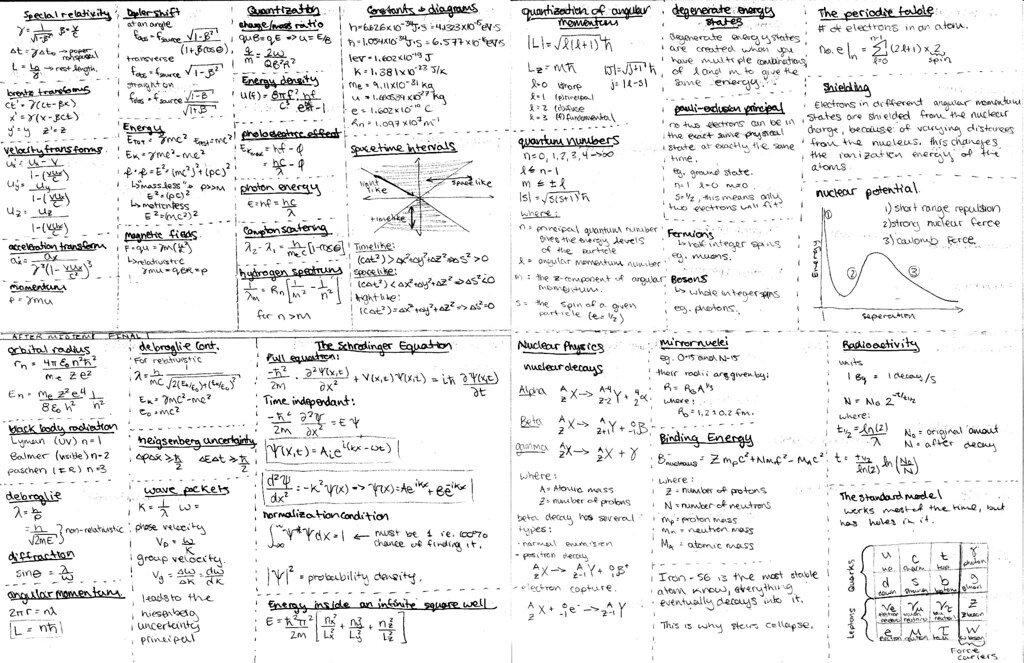 Special relativity
γ = 1/√(1-β²) β = v/c
Δt = γΔt₀ → proper
L = L₀/γ → rest length.
lorentz transforms
ct' = γ(ct-βx)
x' = γ(x-βct)
y' = y z' = z
velocity transforms
acceleration transform
momentum
p = γmu
Dopler shift
at an angle
f_obs = f_source √(1-β²)/(1+βcosθ)
transverse
f_obs = f_source √(1-β²)
straight on
f_obs = f_source √(1-β²)/√(1+β²)
Energy
E_tot = γmc² E_rest = mc²
E_k = γmc² - mc²
E² = (mc²)² + (pc)²
↳ massless
E² = (pc)²
↳ motionless
E² = (mc²)²
magnetic fields
↳ relativistic
γmu = qBR = p
Quantization
charge/mass ratio
quB = qE ⇒ u = E/B
Energy density
photoelectric effect
E_kmax = hf - φ
= hc/λ - φ
photon energy
E = hf = hc/λ
Compton scatering
λ₂ - λ₁ = h/(m_e c) [1-cosθ]
hydrogen spectrum
1/λ_m = R_n [1/m² - 1/n²]
for n>m
Constants + diagrams
h = 6.626×10⁻³⁴ J·s
ħ = 1.054×10⁻³⁴ J·s = 6.577×10⁻¹⁶ eV·s
1eV = 1.602×10⁻¹⁹ J
K = 1.381×10⁻²³ J/K
Me = 9.11×10⁻³¹ kg
e = 1.602×10⁻¹⁹ C
R_n = 1.097×10⁷ m⁻¹
spacetime intervals
light like
spacelike
timelike
Timelike:
(cΔt)² > Δx²+Δy²+Δz² ⇒ ΔS² > 0
spacelike:
(cΔt)² < Δx²+Δy²+Δz² ⇒ ΔS² < 0
light like:
(cΔt)² = Δx²+Δy²+Δz² ⇒ ΔS² = 0
quantization of angular
momentum
|L| = √(l(l+1)) ħ
L_z = mħ |J| = √(j(j+1)) ħ
l=0 (sharp j = |l-s|
l=1 (principal)
l=2 (difuse
l=3 (f)fundamental)
quantum numbers
n = 0, 1, 2, 3, 4 → ∞
l ≤ n-1
m ≤ ± l
|S| = √(s(s+1)) ħ
where:
n = principal quantum number
gives the energy levels
of the particle
l = angular momentum number
m = the z-component of angular
momentum.
s = the spin of a given
particle (e = ½)
degenerate energy
states
degenerate energy states
are created when you
have multiple combinations
of l and m to give the
same energy.
pauli-exlusion principal
no two electrons can be in
the exact same physical
state at exactly the same
time.
eg. ground state.
n=1 l=0 m=0
s=½, this means only
two electrons will fit
Fermions
↳ half integer spins
eg. muons.
Bosons
↳ whole integer spins
eg. photons.
The periodic table
# of electrons in an atom.
no. e |_n = Σ_{l=0}^{n-1} (2l+1) × 2
spin
Shielding
Electrons in different angular momentum
states are shielded from the nuclear
charge, because of varying distances
from the nucleus, this changes
the ionization energy of the
atoms
nuclear potential
1) short range repulsion
2) strong nuclear force
3) coulomb force
Energy
① ② ③
seperation
AFTER MIDTERM FINAL!
orbital radius
r_n = 4πε₀n²ħ²/(m_e z e²)
E_n = m_e z²e⁴/(8ε₀h²) 1/n²
black body radiation
Lyman (UV) n=1
Balmer (visible) n=2
paschen (IR) n=3
debroglie
λ = h/p
= h/√(2mE) } non-relativistic
diffraction
sinθ = λ/ω
angular momentum
2πr = nλ
L = nħ
debroglie cont.
For relativistic
E_k = γmc² - mc²
e₀ = mc²
heigsenberg uncertainty
ΔpΔx ≥ ħ/2 ΔEΔt ≥ ħ/2
wave packets
K = 1/λ ω =
phase velocity
V_p = ω/K
group velocity.
V_g = Δω/ΔK = dω/dK
leads to the
hiesenberg
uncertainty
principal
The Schrodinger Equation
Full equation:
-ħ²/2m ∂²Ψ(x,t)/∂x² + V(x,t)Ψ(x,t) = iħ ∂Ψ(x,t)/∂t
Time independant:
-ħ²/2m ∂²Ψ/∂x² = EΨ
Ψ(x,t) = A_i e^{i(kx-ωt)}
d²Ψ/dx² = -K²Ψ(x) ⇒ Ψ(x) = Ae^{ikx} + Be^{-ikx}
normalization condition
∫_{-∞}^{∞} Ψ*Ψ dx = 1 ← must be 1 ie. 100%
chance of finding it.
|Ψ|² = probability density.
Energy inside an infinite square well
E = ħ²π²/2m [n_x²/L_x² + n_y²/L_y² + n_z²/L_z²]
Nuclear Physics
nuclear decays
Alpha ᴬ_Z X → ᴬ⁻⁴_Z-2 Y + ⁴₂α
Beta ᴬ_Z X → ᴬ_Z+1 Y + ⁰₋₁B
gamma ᴬ_Z X → ᴬ_Z X + γ
where:
A = Atomic mass
Z = number of protons
beta decay has several
types:
- normal
- positron decay
ᴬ_Z X → ᴬ_Z-1 Y + ⁰₁B⁺
- electron capture.
ᴬ_Z X + ⁰₋₁e⁻ → ᴬ_Z-1 Y
mirror nuclei
eg. O-15 and N-15
their radii are given by:
R = R₀A^{1/3}
where
R₀ = 1.2 ± 0.2 fm.
Binding Energy
B_nucleus = Z m_p c² + N m_n c² - M_A c²
where:
Z = number of protons
N = number of neutrons
m_p = proton mass
m_n = neutron mass
M_A = atomic mass
Iron-56 is the most stable
atom know, everything
eventually decays into it.
This is why stars collapse.
Radioactivity
units
1 Bq = 1 decay/s
N = N₀ 2^{-t/t½}
where:
t½ = ln(2)/λ N₀ = original amount
N = after decay
t = t½/ln(2) ln(N₀/N)
The standard model
works most of the time, but
has holes in it.
Quarks
Leptons
u c t γ
up charm top photon
d s b g
down strange bottom gluon
νe νμ ντ Z
e μ τ W
Force
carriers